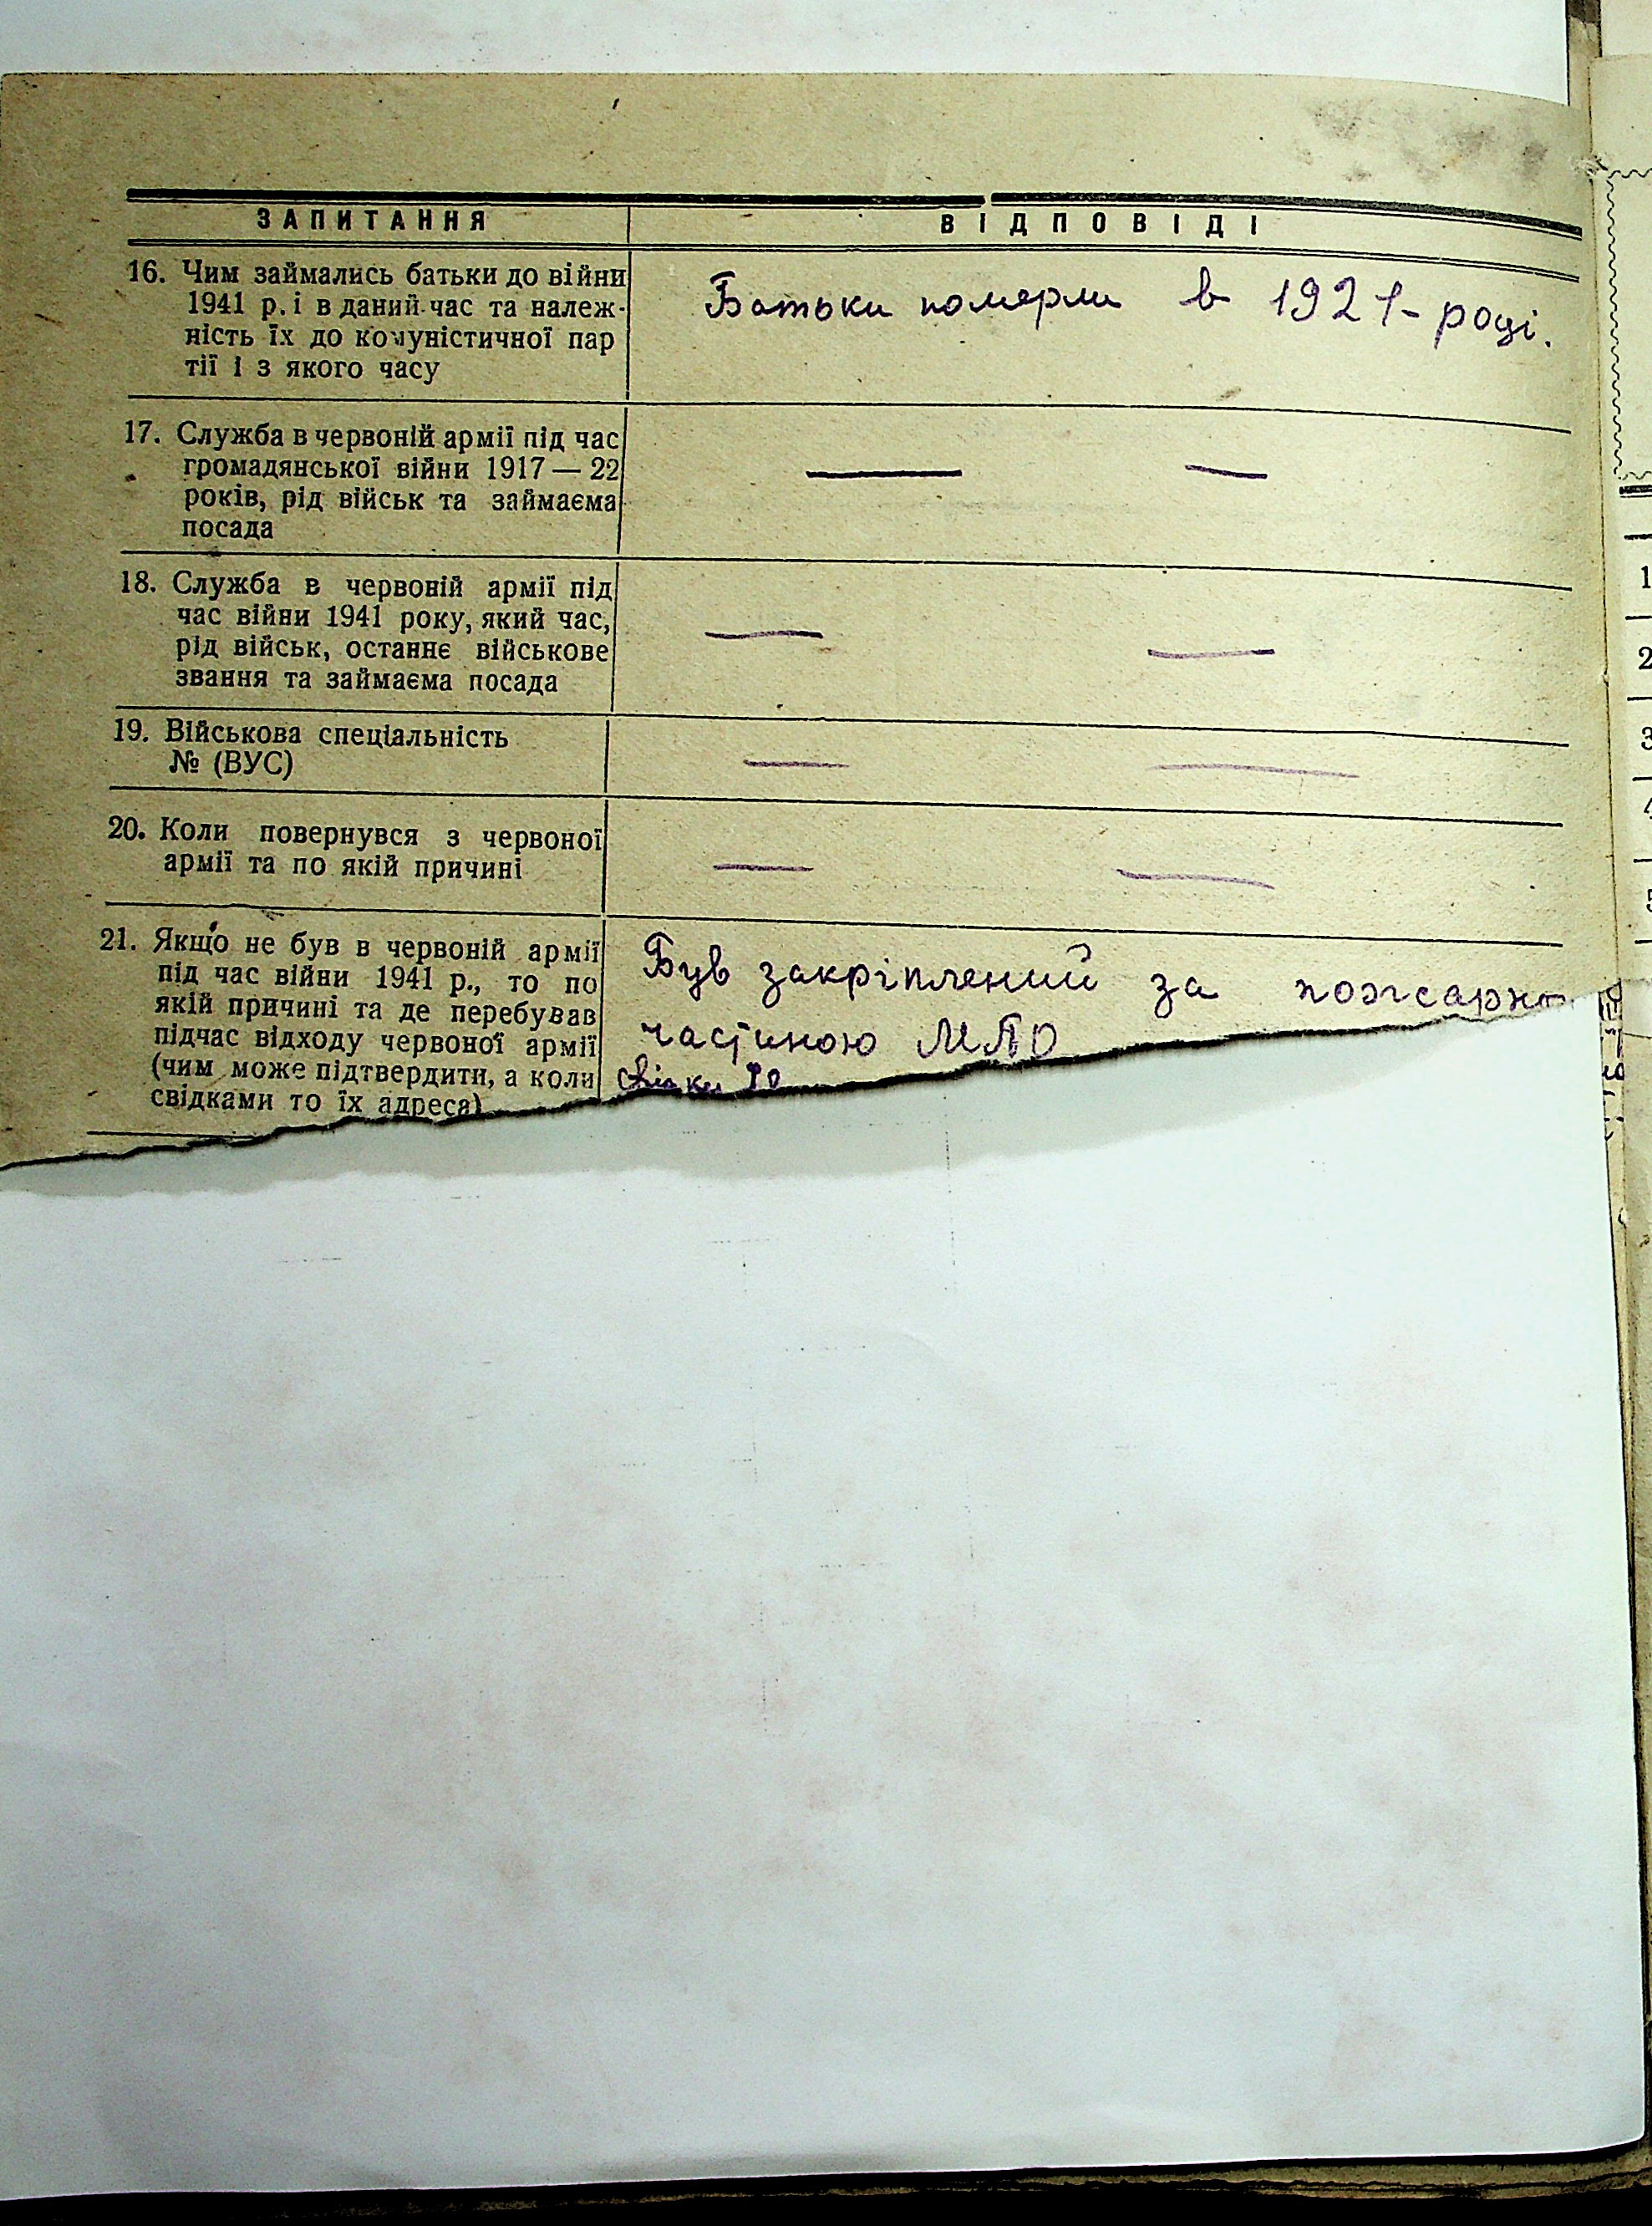 ЗАПИТАННЯ ВІДПОВІДІ
16. Чим займались батьки до війни
1941 р. і в даний час та належ-
ність їх до комуністичної пар
тії і з якого часу
Батьки померли в 1921-році.
17. Служба в червоній армії під час
громадянської війни 1917 — 22
років, рід військ та займаєма
посада
— —
18. Служба в червоній армії під
час війни 1941 року, який час,
рід військ, останнє військове
звання та займаєма посада
— —
19. Військова спеціальність
№ (ВУС)
— —
20. Коли повернувся з червоної
армії та по якій причині
— —
21. Якщо не був в червоній армії
під час війни 1941 р., то по
якій причині та де перебував
підчас відходу червоної армії
(чим може підтвердити, а коли
свідками то їх адреса)
Був закріплений за пожарно
частиною МПО
1
2
3
4
5